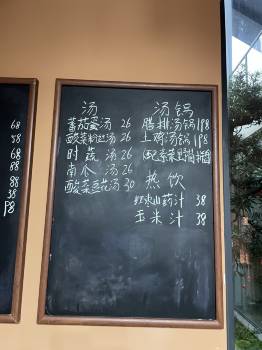 68
68
68
88
88
38
198
汤
番茄蛋汤 26
酸菜粉丝汤 26
时蔬汤 26
南瓜汤 26
酸菜豆花汤 30
汤锅
腊排汤锅 198
土鸡汤锅 198
热饮
红枣山药汁 38
玉米汁 38